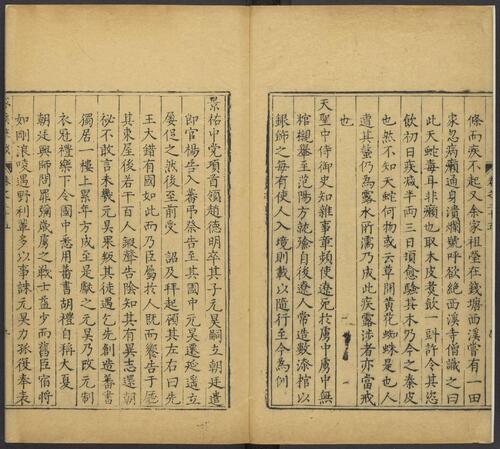 條而疾不起又余家祖塋在錢塘西溪嘗有一田
家忽病癩通身潰爛號呼欲絕西溪寺僧識之曰
此天蛇毒耳非癩也取木皮煮飲一斗許令其恣
飲初日疾減半兩三日頓愈驗其木乃今之秦皮
也然不知天蛇何物或云草間黃花蜘蛛是也人
遭其螫仍為露水所濡乃成此疾露涉者亦當戒
也
天聖中侍御史知雜事章頻使遼死於虜中虜中無
棺櫬轝至范陽方就殮自後遼人常造數漆棺以
銀飾之每有使人入境則載以隨行至今為例
景祐中党項首領趙德明卒其子元昊嗣立朝廷遣
郎官楊告入蕃弔祭告至其國中元昊遷延遙立
屢促之然後至前受 詔及拜起顧其左右曰先
王大錯有國如此而乃臣屬於人既而饗告于廳
其東屋後若千百人鍛聲告陰知其有異志還朝
祕不敢言未幾元昊果叛其徒遇乞先創造蕃書
獨居一樓上累年方成至是獻之元昊乃改元制
衣冠禮樂下令國中悉用蕃書胡禮自稱大夏
朝廷興師問罪彌歲虜之戰士益少而舊臣宿將
如剛浪㖫遇野利輩多以事誅元昊力孤復奉表